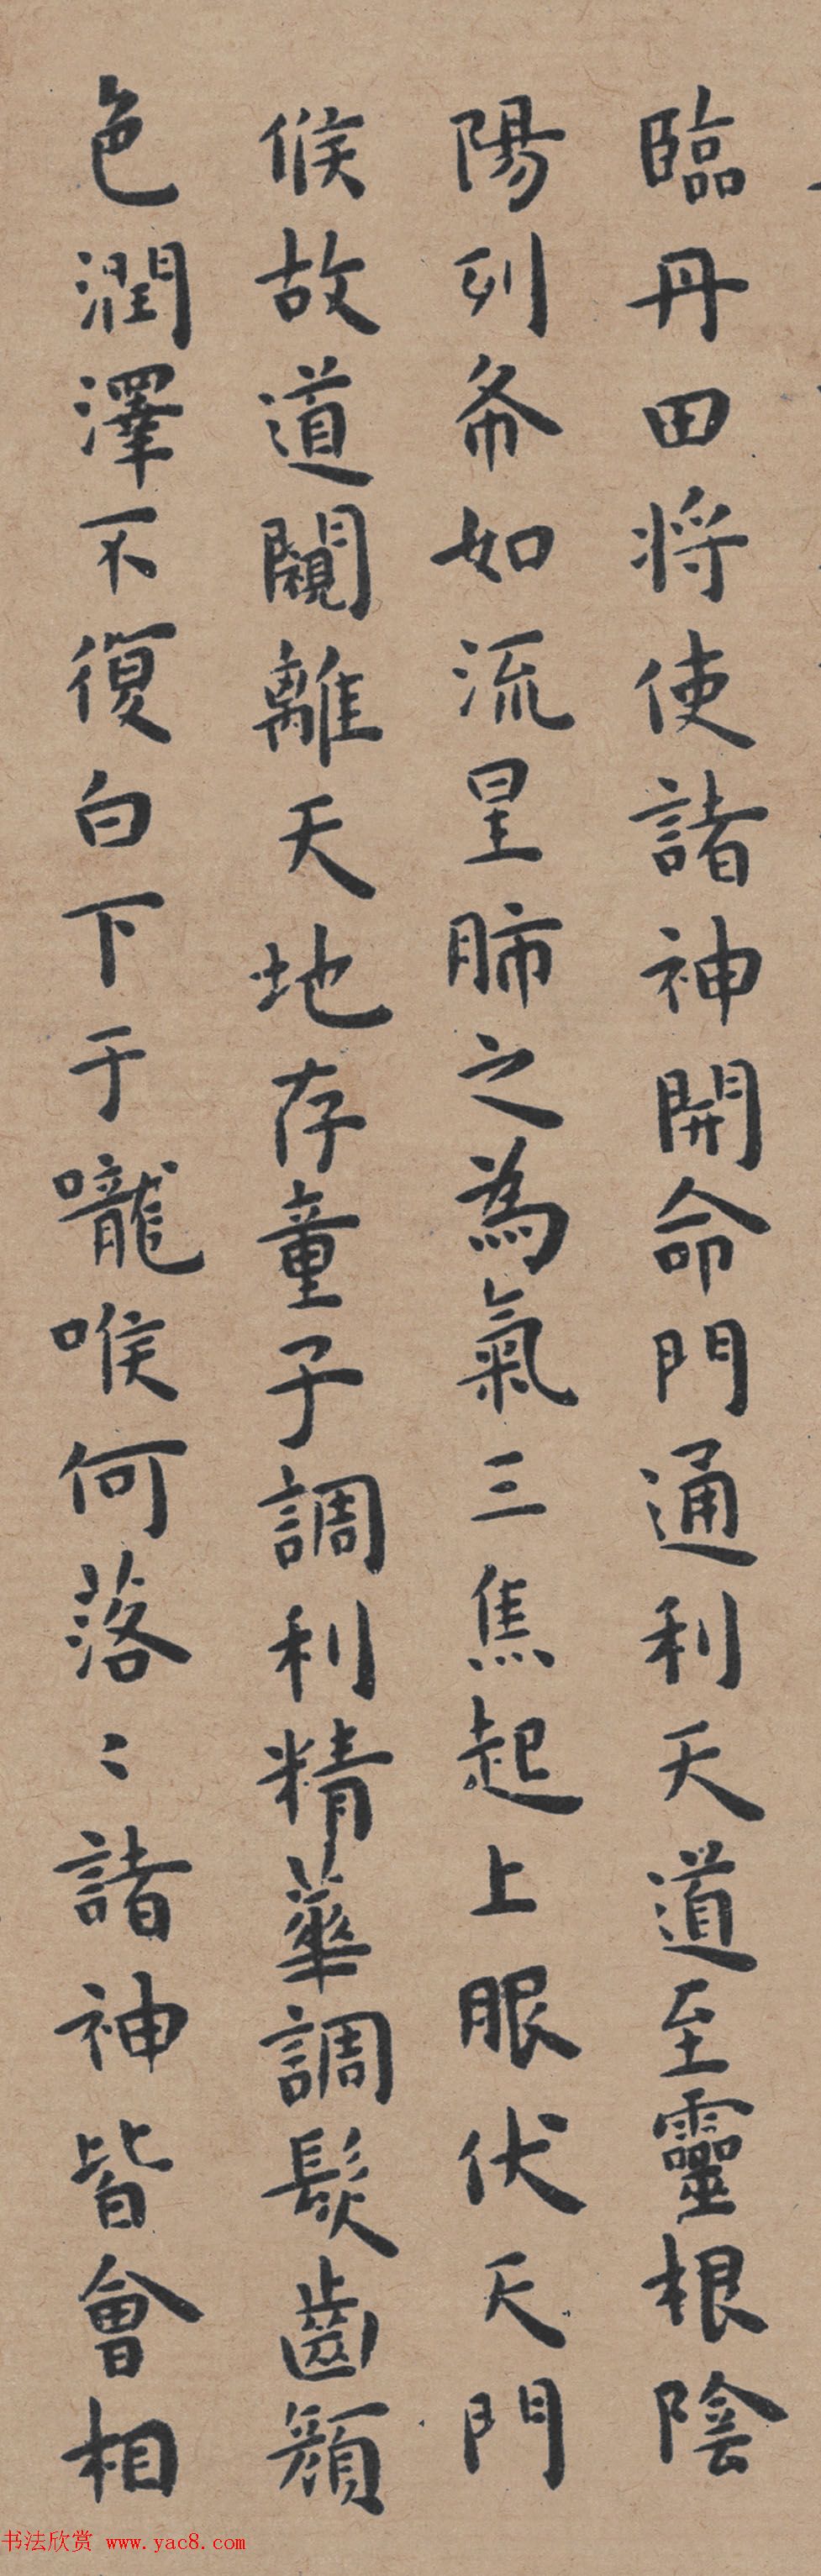 臨丹田將使諸神開命門通利天道至靈根陰
陽列布如流星肺之為氣三焦起上眼伏天門
候故道闚離天地存童子調利精華調髮齒顏
色潤澤不復白下于嚨喉何落〻諸神皆會相
书法欣赏 www.yac8.com